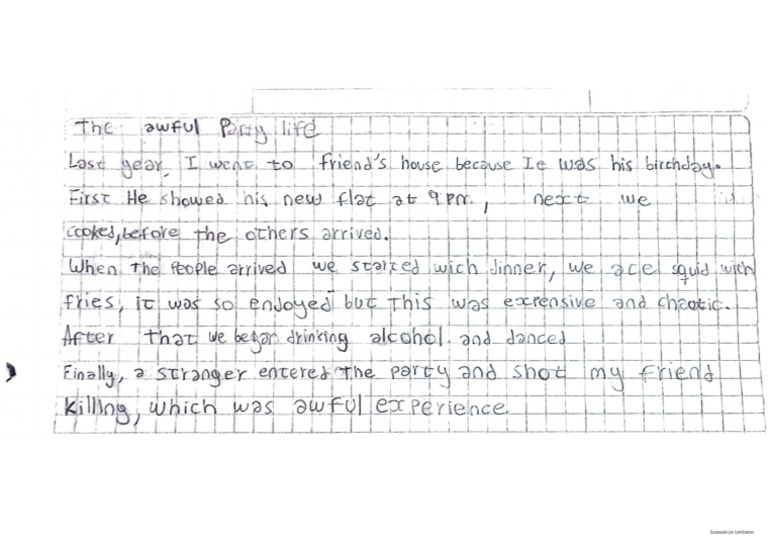 The awful Party life
Last year, I went to friend's house because It was his birthday.
First He showed his new flat at 9 pm, next we
cooked, before the others arrived.
When The People arrived we started with dinner, we ate squid with
fries, it was so enjoyed but this was expensive and chaotic.
After that we began drinking alcohol. and danced
Finally, a stranger entered the party and shot my friend
Killing, which was awful experience.
Escaneado con CamScanner